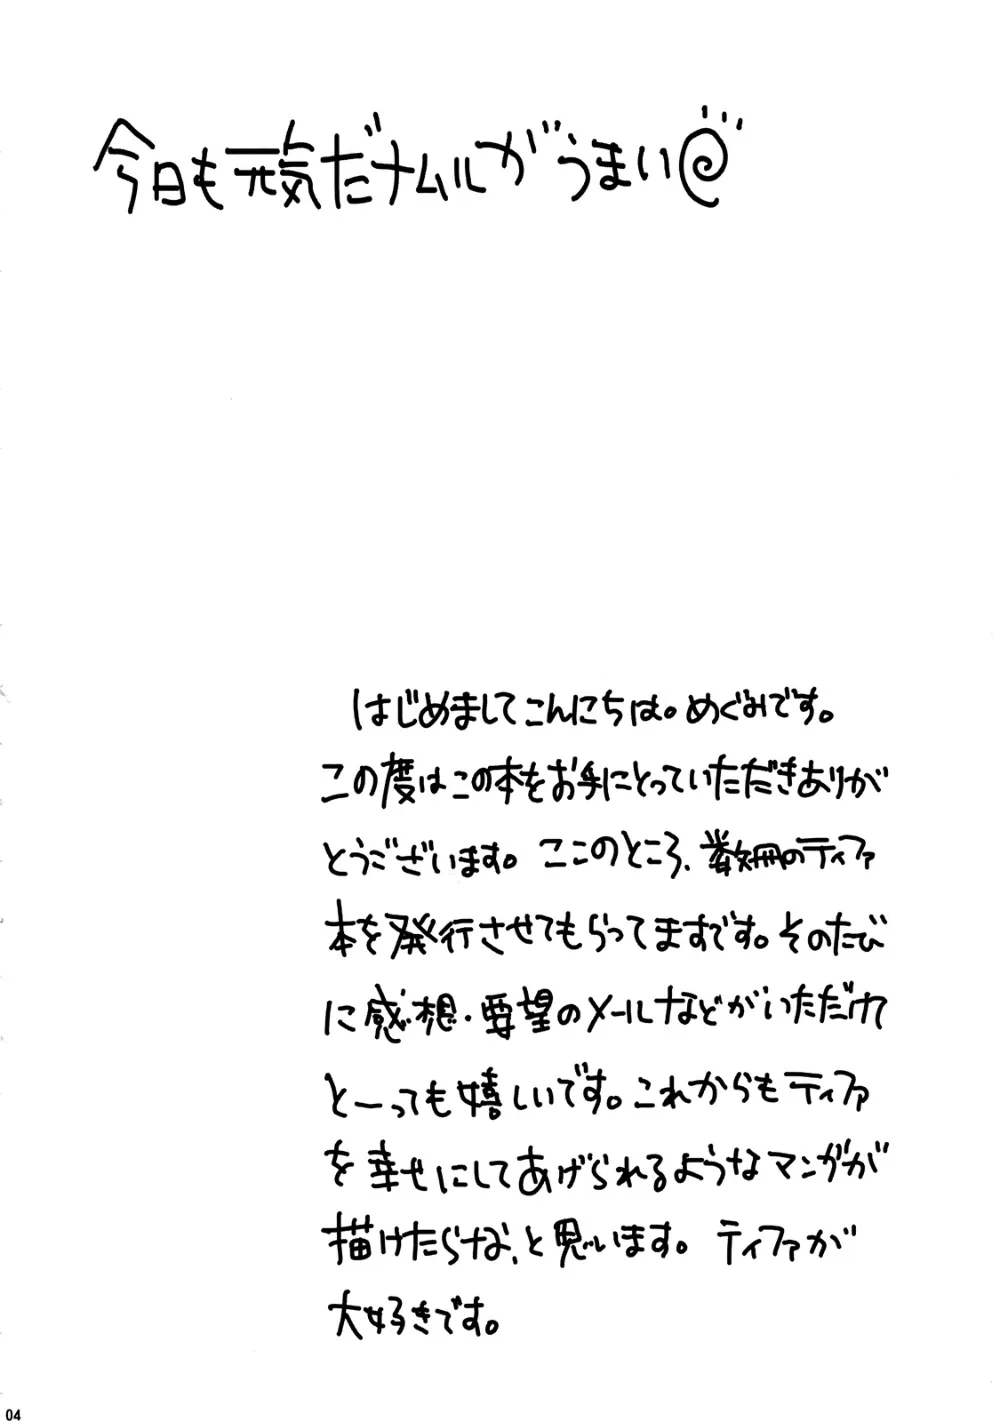 今日も元気だナムルがうまい@
はじめましてこんにちは。めぐみです。
この度はこの本をお手にとっていただきありが
とうございます。ここのところ、数冊のティファ
本を発行させてもらってますです。そのたび
に感想・要望のメールなどがいただけて
とーっても嬉しいです。これからもティファ
を幸せにしてあげられるようなマンガが
描けたらなぁ、と思います。ティファが
大好きです。
04